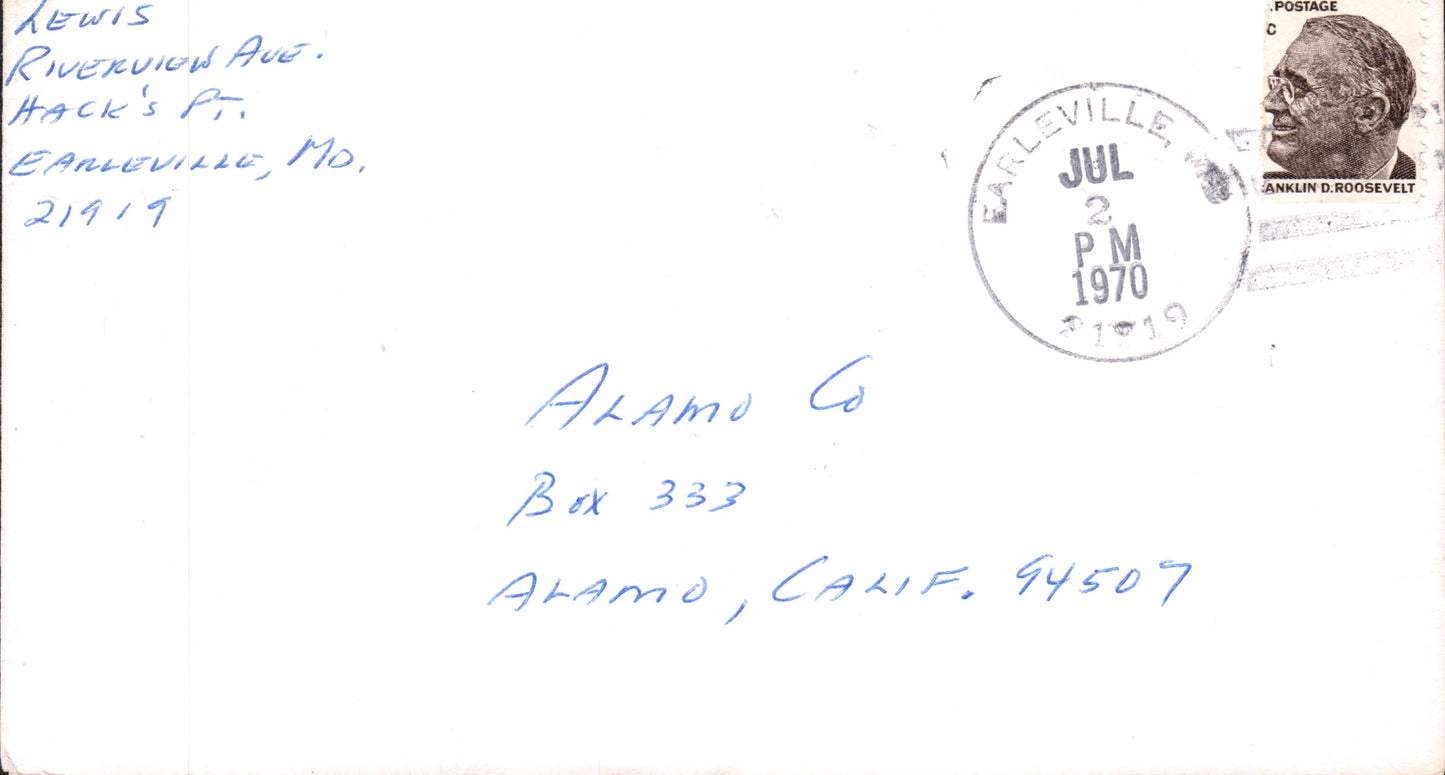 LEWIS
RIVERVIEW AVE.
HACK'S PT.
EARLEVILLE, MD.
21919
.POSTAGE
C
ANKLIN D. ROOSEVELT
EARLEVILLE,
JUL
2
PM
1970
ALAMO CO
BOX 333
ALAMO, CALIF. 94507